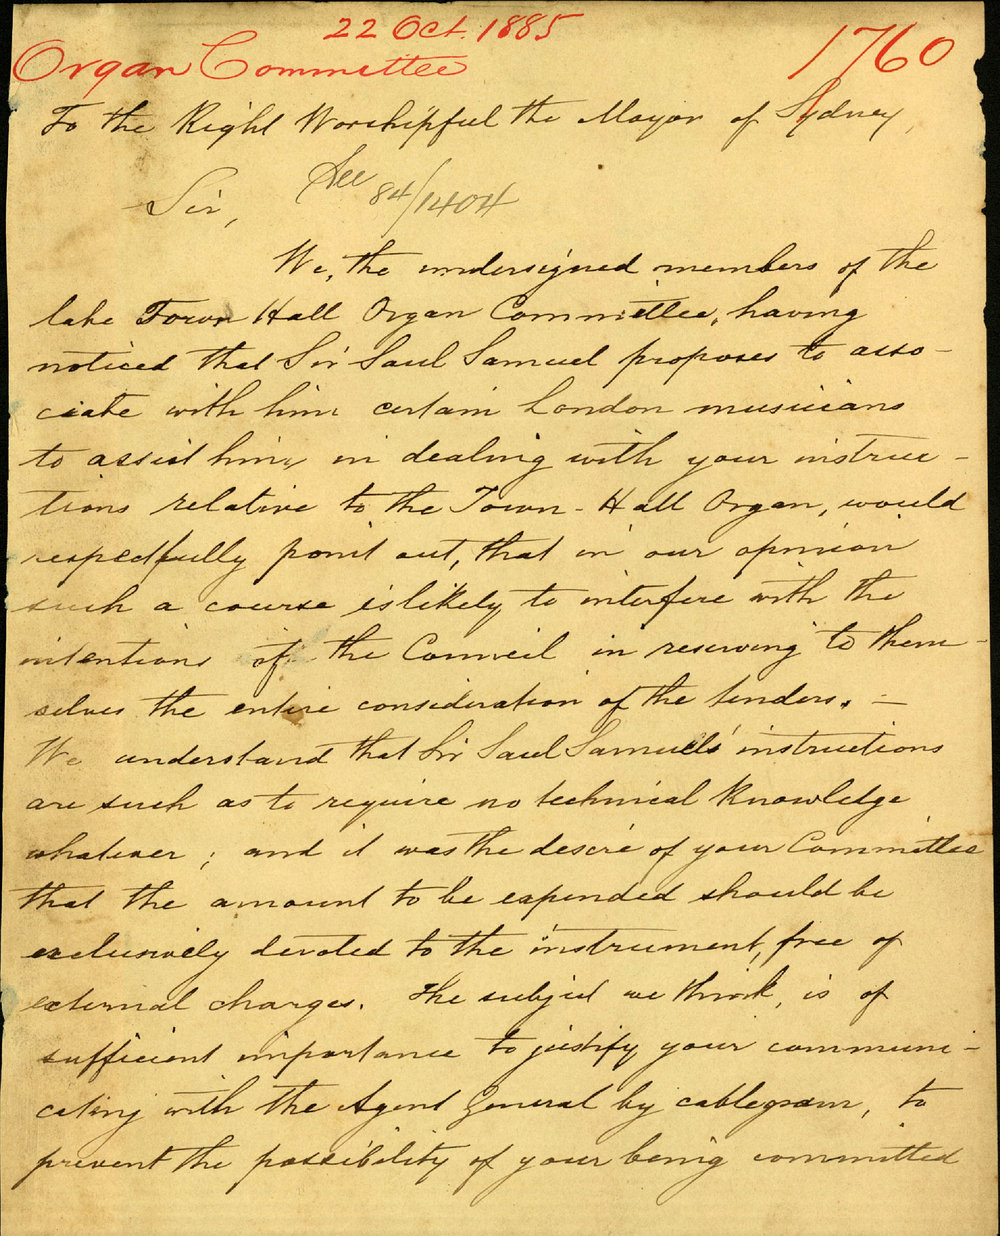 22 Oct. 1885
Organ Committee
1760
To the Right Worshipful the Mayor of Sydney,
Sir,
See 84/1404
We, the undersigned members of the
late Town Hall Organ Committee, having
noticed that Sir Saul Samuel proposes to asso-
ciate with him certain London musicians
to assist him, in dealing with your instruc-
tions relative to the Town-Hall Organ, would
respectfully point out, that in our opinion
such a course is likely to interfere with the
intentions of the Council in reserving to them-
selves the entire consideration of the tenders. —
We understand that Sir Saul Samuels' instructions
are such as to require no technical knowledge
whatever; and it was the desire of your Committee
that the amount to be expended should be
exclusively devoted to the instrument, free of
external charges. The subject we think, is of
sufficient importance to justify your communi-
cating with the Agent General by cablegram, to
prevent the possibility of your being committed